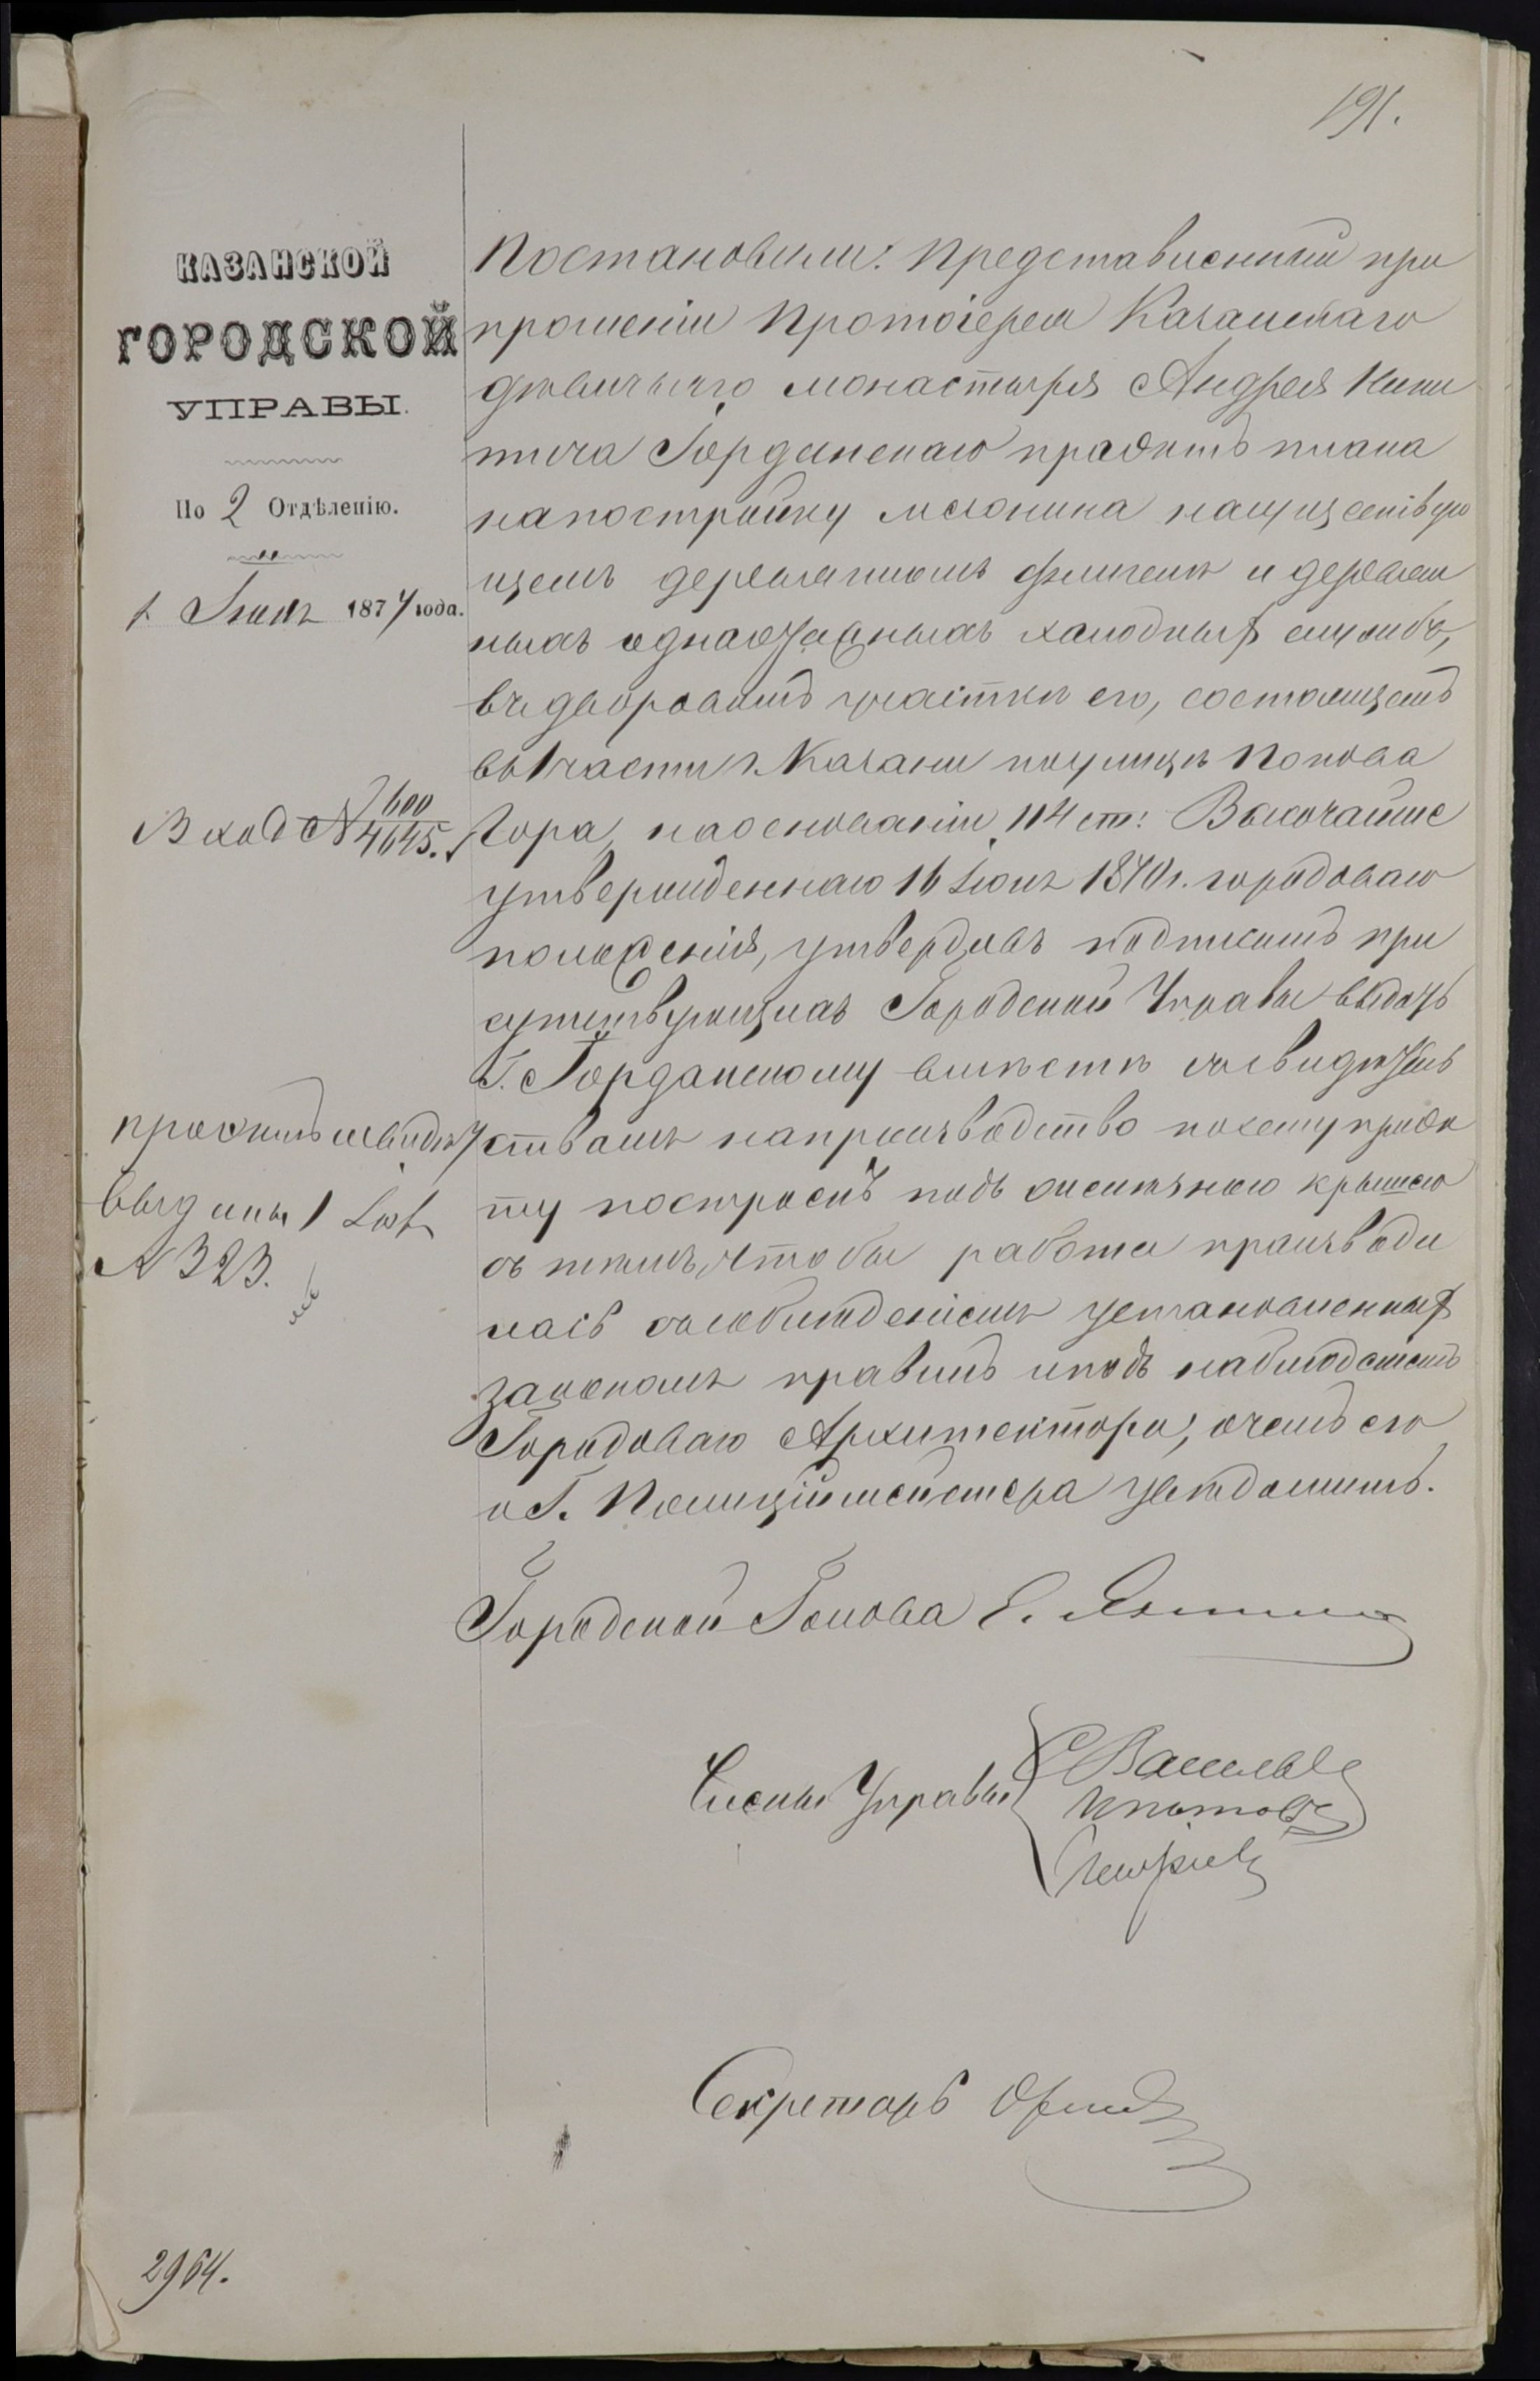 191.
КАЗАНСКОЙ
ГОРОДСКОЙ
УПРАВЫ.
По 2 Отдѣленію.
1 Іюля 1874 года.
Вход № 600/4645.
проэктъ и свидѣт
выданы 1 Іюля
№ 323.
Постановили: Представленный при
прошеніи Протоіерея Казанскаго
дѣвичьяго монастыря Андрея Ники
тича Іорданскаго проэктъ плана
на постройку мезонина на существую
щемъ деревянномъ флигелѣ и деревян
ныхъ одноэтажныхъ холодныхъ службъ,
въ дворовомъ участкѣ его, состоящемъ
въ 1 части г. Казани по улицѣ Попова
Гора, на основаніи 114 ст: Высочайше
утвержденнаго 16 Іюня 1870 г. городоваго
положенія, утвердивъ подписомъ при
сутствующихъ Городской Управы выдать
Г. Іорданскому вмѣстѣ съ свидѣтель
ствомъ на производство по сему проэк
ту построекъ подъ
съ тѣмъ, чтобы работы производи
лись съ соблюденіемъ установленныхъ
закономъ правилъ и подъ наблюденіемъ
Городоваго Архитектора, о чемъ его
и Г. Полиціймейстера увѣдомить.
Городской Голова Е. Янишъ
Члены Управы
Васильевъ
Ипатовъ
Секретарь
2964.